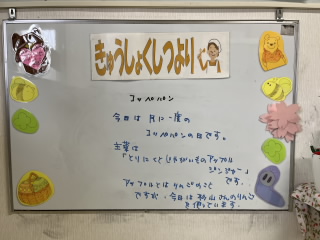 きゅうしょくしつより
コッペパン
今日は 月に一度の
コッペパンの日です。
主菜は
「とりにくとじゃがいものアップル
ジンジャー」
です。
アップルとは りんごのこと
ですが、今日は 杉山さんのりんご
を使っています。